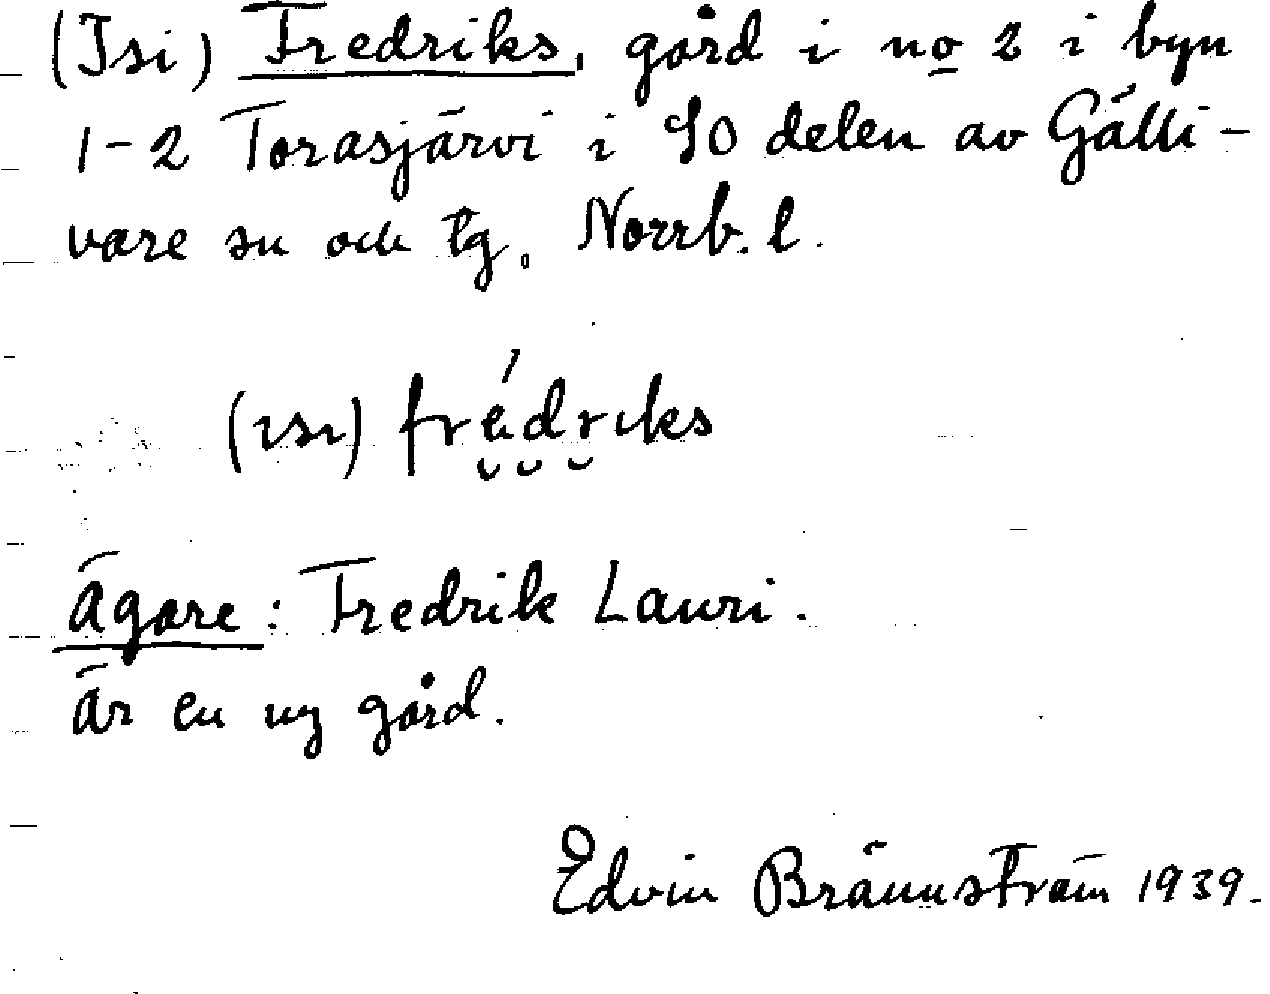 (Isi) Fredriks, gård i no 2 i byn
1-2 Torasjärvi i SO delen av Gälli-
vare sn och tg, Norrb. l.
(ısı) frédrıks
Ägare: Fredrik Lauri.
Är en ny gård.
Edvin Brännström 1939.